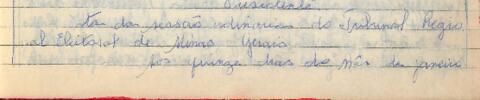 Presidente
ta da sessão ordinária do Tribunal Regio
al Eleitoral de Minas Gerais
Aos quinze dias do mês de janeiro